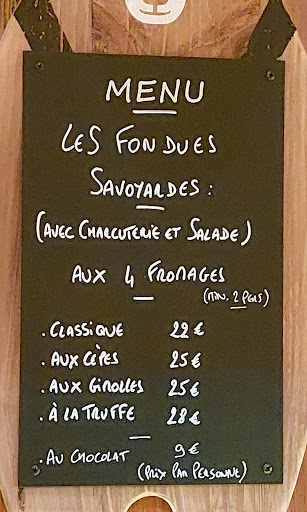 MENU
LES FONDUES
SAVOYARDES :
(AVEC CHARCUTERIE ET SALADE)
AUX 4 FROMAGES
(MIN. 2 PERS)
. CLASSIQUE 22 €
. AUX CÈPES 25 €
. AUX GIROLLES 25 €
. À LA TRUFFE 28 €
. AU CHOCOLAT 9 €
(PRIX PAR PERSONNE)